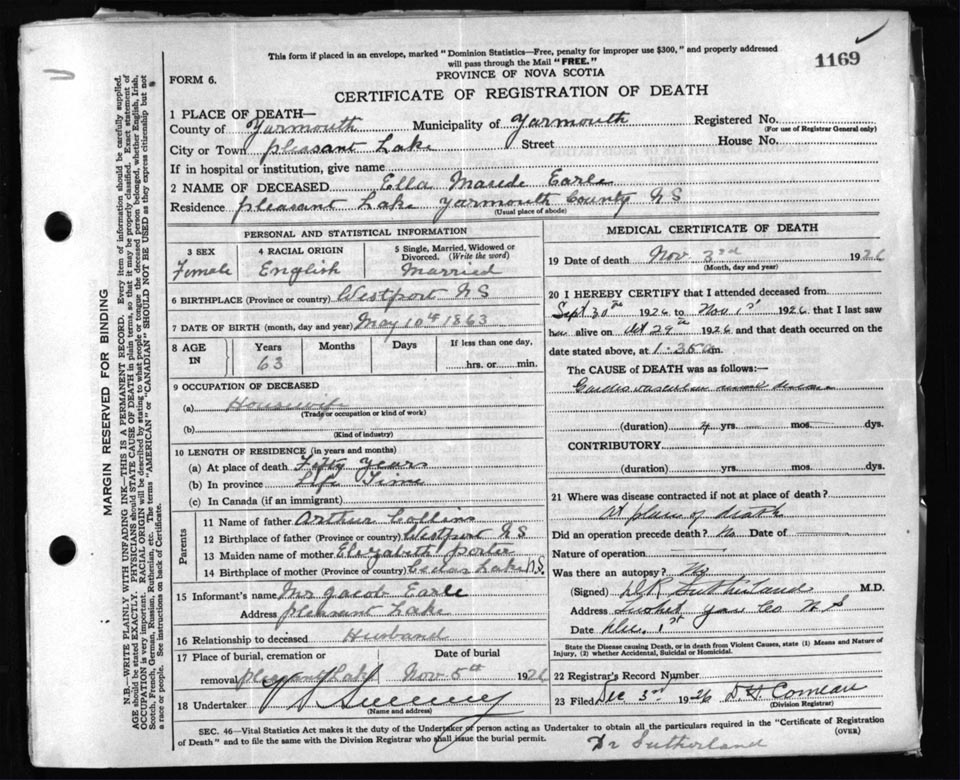 This form if placed in an envelope, marked "Dominion Statistics—Free, penalty for improper use $300," and properly addressed
will pass through the Mail "FREE."
1169
FORM 6.
PROVINCE OF NOVA SCOTIA
CERTIFICATE OF REGISTRATION OF DEATH
1 PLACE OF DEATH—
County of Yarmouth Municipality of Yarmouth Registered No.
(For use of Registrar General only)
City or Town Pleasant Lake Street House No.
If in hospital or institution, give name
2 NAME OF DECEASED Ella Maude Earle
Residence Pleasant Lake Yarmouth County N S
(Usual place of abode)
PERSONAL AND STATISTICAL INFORMATION
3 SEX 4 RACIAL ORIGIN 5 Single, Married, Widowed or
Divorced. (Write the word)
Female English Married
6 BIRTHPLACE (Province or country) Westport N S
7 DATE OF BIRTH (month, day and year) May 10th 1863
8 AGE IN Years Months Days If less than one day,
63 hrs. or min.
9 OCCUPATION OF DECEASED
(a) Housewife
(Trade or occupation or kind of work)
(b)
(Kind of industry)
10 LENGTH OF RESIDENCE (in years and months)
(a) At place of death Fifty Years
(b) In province Life Time
(c) In Canada (if an immigrant)
Parents
11 Name of father Arthur Collins
12 Birthplace of father (Province or country) Westport N S
13 Maiden name of mother Elizabeth Porter
14 Birthplace of mother (Province or country) Cedar Lake N.S.
15 Informant's name Mr Jacob Earle
Address Pleasant Lake
16 Relationship to deceased Husband
17 Place of burial, cremation or Date of burial
removal Pleasant Lake Nov 5th 1926
18 Undertaker Sweeney
(Name and address)
MEDICAL CERTIFICATE OF DEATH
19 Date of death Nov. 3rd 1926
(Month, day and year)
20 I HEREBY CERTIFY that I attended deceased from
Sept 30th 1926 to Nov 1st 1926, that I last saw
her alive on Oct 29th 1926 and that death occurred on
date stated above, at 1.35 a m.
The CAUSE OF DEATH was as follows:—
Cardio vascular renal disease
(duration) 4 yrs. mos. dys.
CONTRIBUTORY
(duration) yrs. mos. dys.
21 Where was disease contracted if not at place of death?
At place of death
Did an operation precede death? No Date of
Nature of operation
Was there an autopsy? No
(Signed) Sutherland M.D.
Address Tusket Yar Co N S
Date Dec. 1st
State the Disease causing Death, or in death from Violent Causes, state (1) Means and Nature of
Injury, (2) whether Accidental, Suicidal or Homicidal.
22 Registrar's Record Number
23 Filed Dec 3rd 1926 Comeau
(Division Registrar)
SEC. 46—Vital Statistics Act makes it the duty of the Undertaker or person acting as Undertaker to obtain all the particulars required in the "Certificate of Registration
of Death" and to file the same with the Division Registrar who shall issue the burial permit.
(OVER)
Dr Sutherland
MARGIN RESERVED FOR BINDING
N.B.—WRITE PLAINLY WITH UNFADING INK—THIS IS A PERMANENT RECORD. Every item of information should be carefully supplied.
AGE should be stated EXACTLY. PHYSICIANS should STATE CAUSE OF DEATH in plain terms, so that it may be properly classified. Exact statement of
OCCUPATION is very important. RACIAL ORIGIN will be described by stating to what people or tongue the deceased person belonged, whether English, Irish,
Scotch, French, German, Russian, Ruthenian, etc. The terms "AMERICAN" or "CANADIAN" SHOULD NOT BE USED as they express citizenship but not
a race or people. See instructions on back of Certificate.